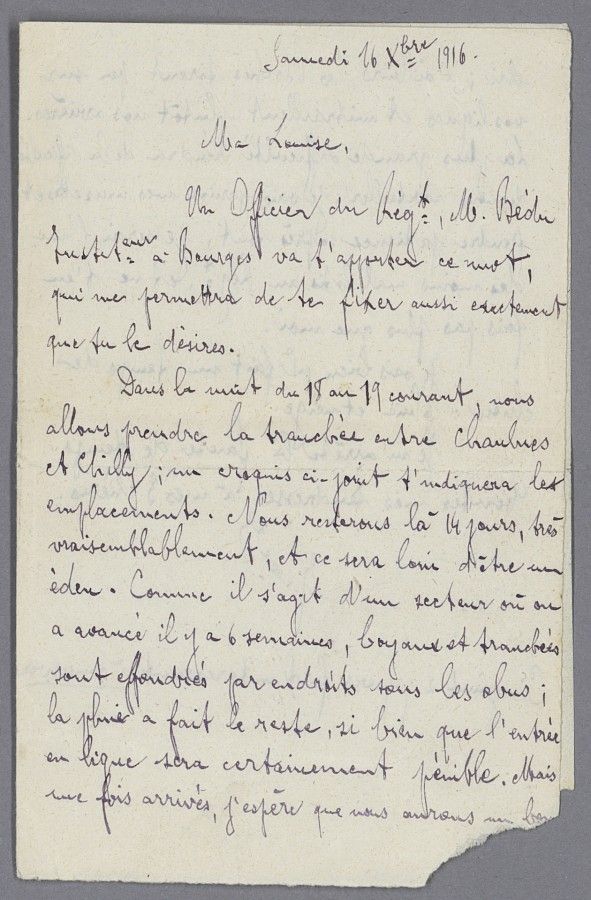 Samedi 16 Xbre 1916.
Ma Louise,
Un Officier du Régt, M. Bédu
Institeur à Bourges va t'apporter ce mot,
qui me permettra de te fixer aussi exactement
que tu le désires.
Dans la nuit du 18 au 19 courant, nous
allons prendre la tranchée entre Chaulnes
et Chilly ; un croquis ci-joint t'indiquera les
emplacements. Nous resterons là 14 jours, très
vraisemblablement, et ce sera loin d'être un
éden. Comme il s'agit d'un secteur où on
a avancé il y a 6 semaines, boyaux et tranchées
sont effondrés par endroits sous les obus ;
la pluie a fait le reste, si bien que l'entrée
en ligne sera certainement pénible. Mais
une fois arrivés, j'espère que nous aurons un